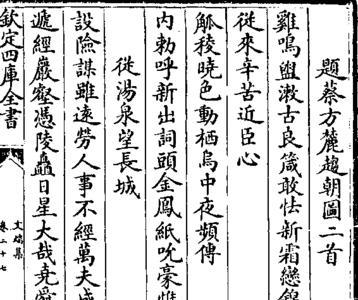 題蔡方麓趨朝圖二首
雞鳴盥漱古良箴敢怯新霜戀錦
從來辛苦近臣心
觚稜曉色動栖烏中夜頻傳
內勅呼新出詞頭金鳳紙吮豪惟
從湯泉望長城
設險謀雖遠勞人事不經萬夫成
遞經巖壑憑陵矗日星大哉堯舜
欽定四庫全書
文端集
卷二十七